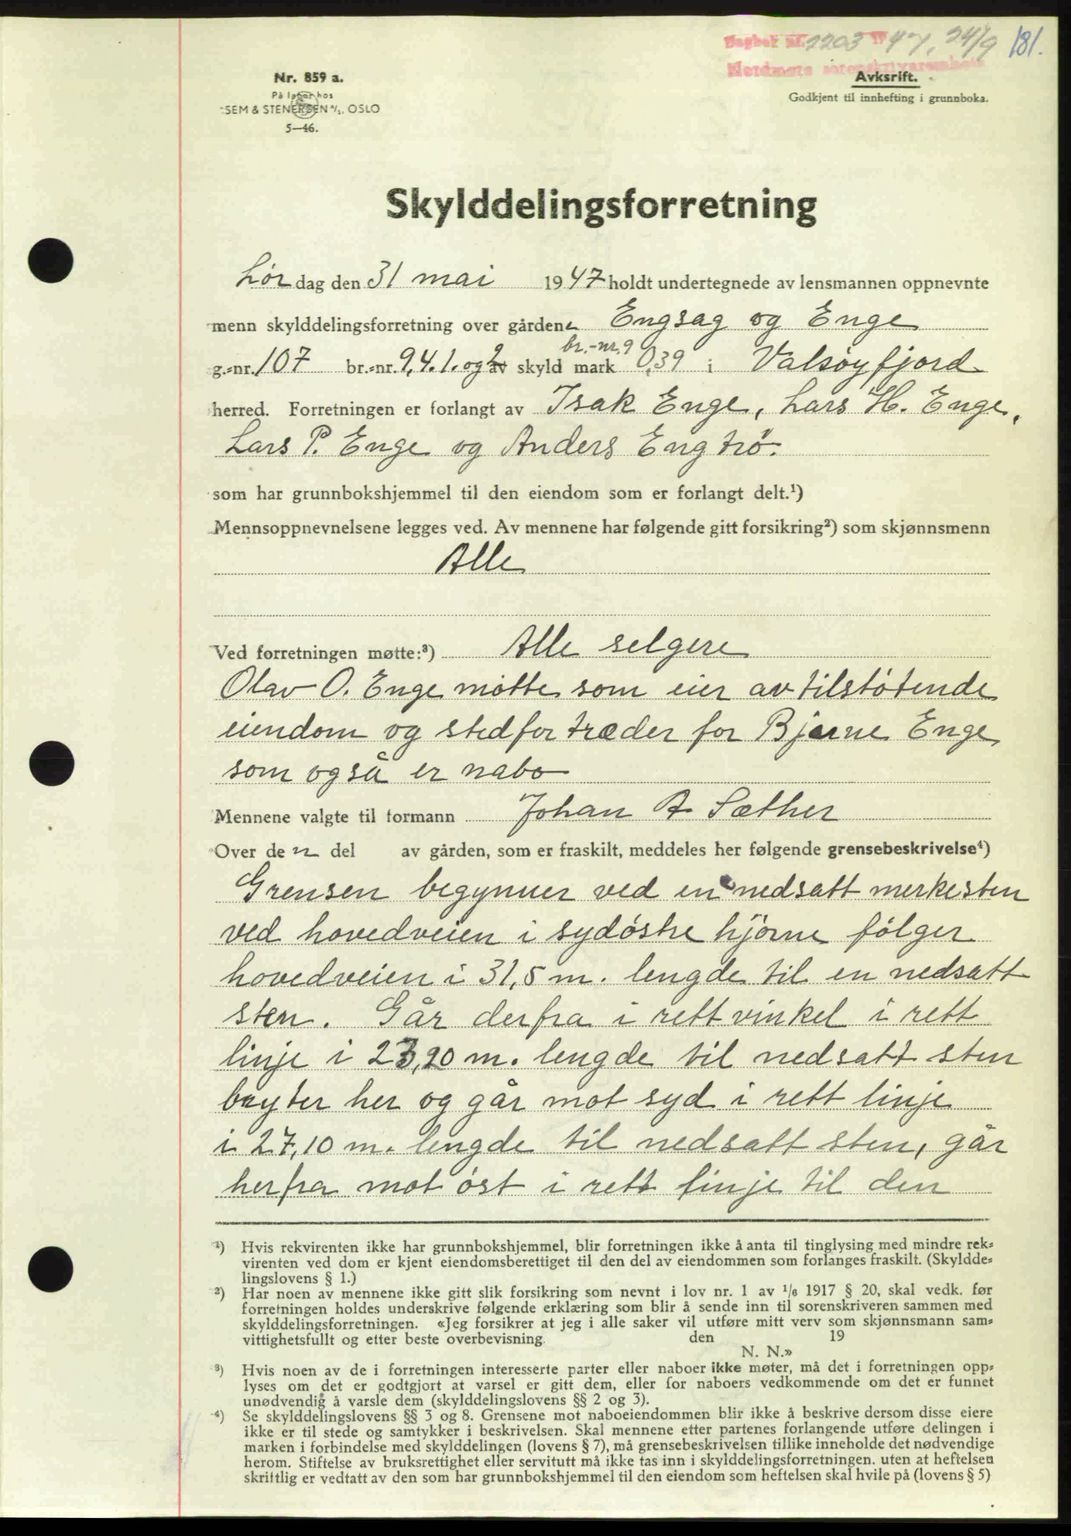 Dagbok nr. 2203 1947, 24/9 181.
Nordmøre sorenskriverembete
Nr. 859 a.
På lager hos
SEM & STENERSEN A/S. OSLO
5—46.
Avksrift.
Godkjent til innhefting i grunnboka.
Skylddelingsforretning
Lør dag den 31 mai 1947 holdt undertegnede av lensmannen oppnevnte
menn skylddelingsforretning over gårdene Engsag og Enge
br.-nr. 9
g.-nr. 107 br.-nr. 9,4.1. og 2 av skyld mark 0,39 i Valsøyfjord
herred. Forretningen er forlangt av Isak Enge, Lars H. Enge,
Lars P. Enge og Anders Engtrø.
som har grunnbokshjemmel til den eiendom som er forlangt delt.¹)
Mennsoppnevnelsene legges ved. Av mennene har følgende gitt forsikring²) som skjønnsmenn
Alle
Ved forretningen møtte:³) Alle selgere
Olav O. Enge møtte som eier av tilstøtende
eiendom og stedfortræder for Bjarne Enge
som også er nabo
Mennene valgte til formann Johan A Sæther
Over den del av gården, som er fraskilt, meddeles her følgende grensebeskrivelse⁴)
Grensen begynner ved en nedsatt merkesten
ved hovedveien i sydøstre hjørne følger
hovedveien i 31,5 m. lengde til en nedsatt
sten. Går derfra i rett vinkel i rett
linje i 23,20 m. lengde til nedsatt sten
bryter her og går mot syd i rett linje
i 27,10 m. lengde til nedsatt sten, går
herfra mot øst i rett linje til den
¹) Hvis rekvirenten ikke har grunnbokshjemmel, blir forretningen ikke å anta til tinglysing med mindre rek-
virenten ved dom er kjent eiendomsberettiget til den del av eiendommen som forlanges fraskilt. (Skyldde-
lingslovens § 1.)
²) Har noen av mennene ikke gitt slik forsikring som nevnt i lov nr. 1 av ¹/₆ 1917 § 20, skal vedk. før
forretningen holdes underskrive følgende erklæring som blir å sende inn til sorenskriveren sammen med
skylddelingsforretningen. «Jeg forsikrer at jeg i alle saker vil utføre mitt verv som skjønnsmann sam-
vittighetsfullt og etter beste overbevisning. den 19
N. N.»
³) Hvis noen av de i forretningen interesserte parter eller naboer ikke møter, må det i forretningen opp-
lyses om det er godtgjort at varsel er gitt dem, eller for naboers vedkommende om det er funnet
unødvendig å varsle dem (skylddelingslovens §§ 2 og 3).
⁴) Se skylddelingslovens §§ 3 og 8. Grensene mot naboeiendommen blir ikke å beskrive dersom disse eiere
ikke er til stede og samtykker i beskrivelsen. Skal mennene etter partenes forlangende utføre delingen i
marken i forbindelse med skylddelingen (lovens § 7), må grensebeskrivelsen tillike inneholde det nødvendige
herom. Stiftelse av bruksrettighet eller servitutt må ikke tas inn i skylddelingsforretningen. uten at heftelsen
skriftlig er vedtatt av den som har grunnbokshjemmel til den eiendom som heftelsen skal hvile på (lovens § 5)